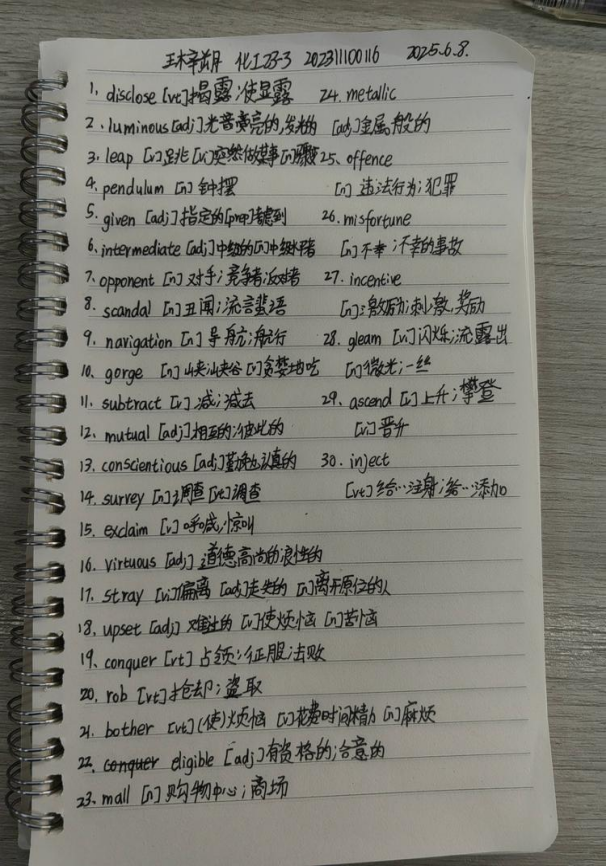 化工23-3 202311100116 2025.6.8.
1、disclose [vt]揭露;使显露
2、luminous [adj]光明的,发光的
3、leap [v]跳 [v]突然做某事 [n]
4、pendulum [n] 钟摆
5、given [adj]指定的[prep]考虑到
6、intermediate [adj]中级的[n]中级
7、opponent [n] 对手;竞争者;反对者
8、scandal [n]丑闻;流言蜚语
9、navigation [n]导航;航行
10、gorge [n]山峡;峡谷 [v]贪婪地吃
11、subtract [v]减;减去
12、mutual [adj]相互的;彼此的
13、conscientious [adj]勤勉的;认真的
14、survey [n]调查 [vt]调查
15、exclaim [v]呼喊,惊叫
16、virtuous [adj]道德高尚的
17、stray [v]偏离 [adj]走失的 [n]离开原位的人
18、upset [adj] 难过的 [v]使烦恼 [n]苦恼
19、conquer [vt] 占领;征服;击败
20、rob [vt]抢劫;盗取
21、bother [vt](使)烦恼 [v]花费时间精力 [n]麻烦
22、conquer eligible [adj]有资格的;合意的
23、mall [n]购物中心;商场
24、metallic
[adj]金属般的
25、offence
[n] 违法行为;犯罪
26、misfortune
[n]不幸;不幸的事故
27、incentive
[n]激励;刺激,奖励
28、gleam [v]闪烁;流露出
[n]微光;一丝
29、ascend [v]上升;攀登
[v]晋升
30、inject
[vt]给…注射;给…添加